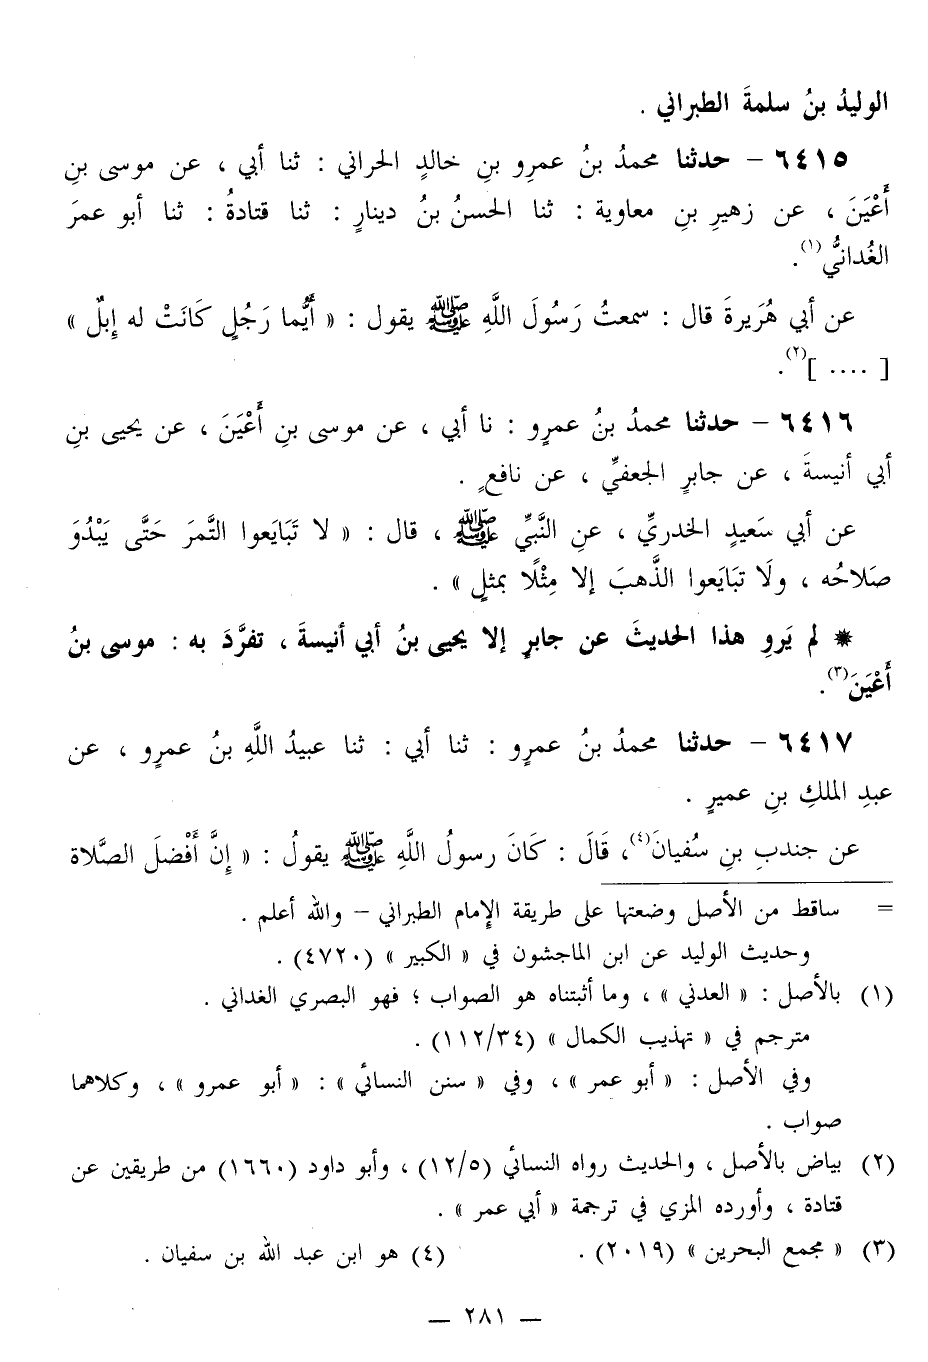 الوليدُ بنُ سلمةَ الطبراني .
٦٤١٥ – حدثنا محمدُ بنُ عمرِو بنِ خالدٍ الحراني : ثنا أبي ، عن موسى بنِ
أَعْيَنَ ، عن زهيرِ بنِ معاوية : ثنا الحسنُ بنُ دينارٍ : ثنا قتادةُ : ثنا أبو عمرَ
الغُدانيُّ(١).
عن أبي هُرَيرةَ قال : سمعتُ رَسُولَ اللَّهِ ﷺ يقول : « أَيُّما رَجُلٍ كَانَتْ له إِبلٌ »
[ .... ](٢).
٦٤١٦ – حدثنا محمدُ بنُ عمرٍو : نا أبي ، عن موسى بنِ أَعْيَنَ ، عن يحيى بنِ
أبي أنيسةَ ، عن جابرٍ الجعفيِّ ، عن نافعٍ .
عن أبي سَعيدٍ الخدريِّ ، عنِ النَّبيِّ ﷺ ، قال : « لا تَبَايَعوا التَّمرَ حَتَّى يَبْدُوَ
صَلاحُه ، ولَا تبَايَعوا الذَّهبَ إلا مِثْلًا بمثلٍ » .
* لم يَروِ هذا الحديثَ عن جابرٍ إلا يحيى بنُ أبي أنيسةَ ، تفرَّدَ به : موسى بنُ
أَعْيَنَ(٣).
٦٤١٧ – حدثنا محمدُ بنُ عمرٍو : ثنا أبي : ثنا عبيدُ اللَّهِ بنُ عمرٍو ، عن
عبدِ الملكِ بنِ عميرٍ .
عن جندبِ بنِ سُفيانَ(٤)، قَالَ : كَانَ رسولُ اللَّهِ ﷺ يقولُ : « إِنَّ أَفْضلَ الصَّلاة
= ساقط من الأصل وضعتها على طريقة الإمام الطبراني – والله أعلم .
وحديث الوليد عن ابن الماجشون في « الكبير » (٤٧٢٠) .
(١) بالأصل : « العدني » ، وما أثبتناه هو الصواب ؛ فهو البصري الغداني .
مترجم في « تهذيب الكمال » (١١٢/٣٤) .
وفي الأصل : « أبو عمر » ، وفي « سنن النسائي » : « أبو عمرو » ، وكلاهما
صواب .
(٢) بياض بالأصل ، والحديث رواه النسائي (١٢/٥) ، وأبو داود (١٦٦٠) من طريقين عن
قتادة ، وأورده المزي في ترجمة « أبي عمر » .
(٣) « مجمع البحرين » (٢٠١٩) . (٤) هو ابن عبد الله بن سفيان .
— ٢٨١ —